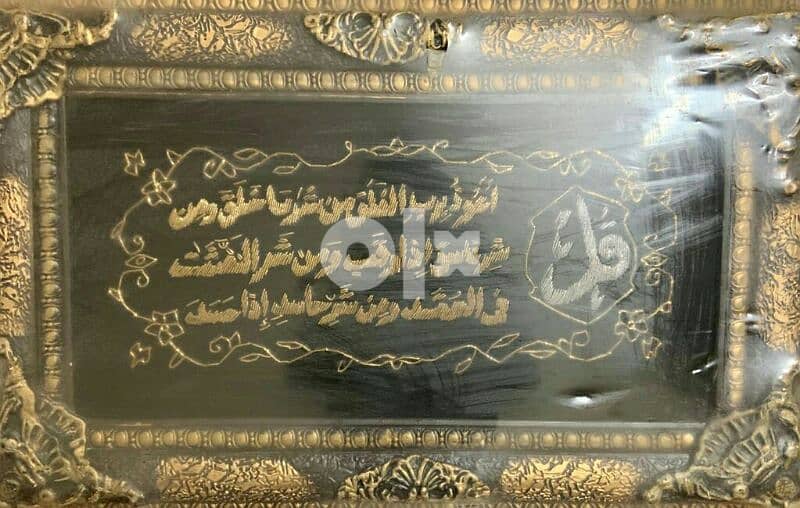 قل
اعوذ برب الفلق من شر ما خلق ومن
شر غاسق إذا وقب ومن شر النفثت
في العقد ومن شر حاسد إذا حسد
olx